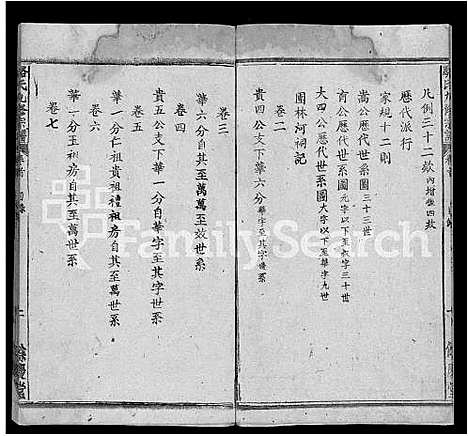 凡例三十二欵 內增後四欵
歷代派行
家規十二則
嵩公歷代世系圖 三十三世
育公歷代世系圖 元字以下至叔字三十世
大四公歷代世系圖 大字以下至華字九世
圍林河祠記
卷二
貴四公支下華六分 華字至其字優系
卷三
華六分自其至萬萬至效世系
卷四
貴五公支下華一分自華字至其字世系
卷五
華一分仁祖貴祖禮祖房自其至萬世系
卷六
華一分玉祖房自其至萬世系
卷七
餘慶堂
FamilySearch